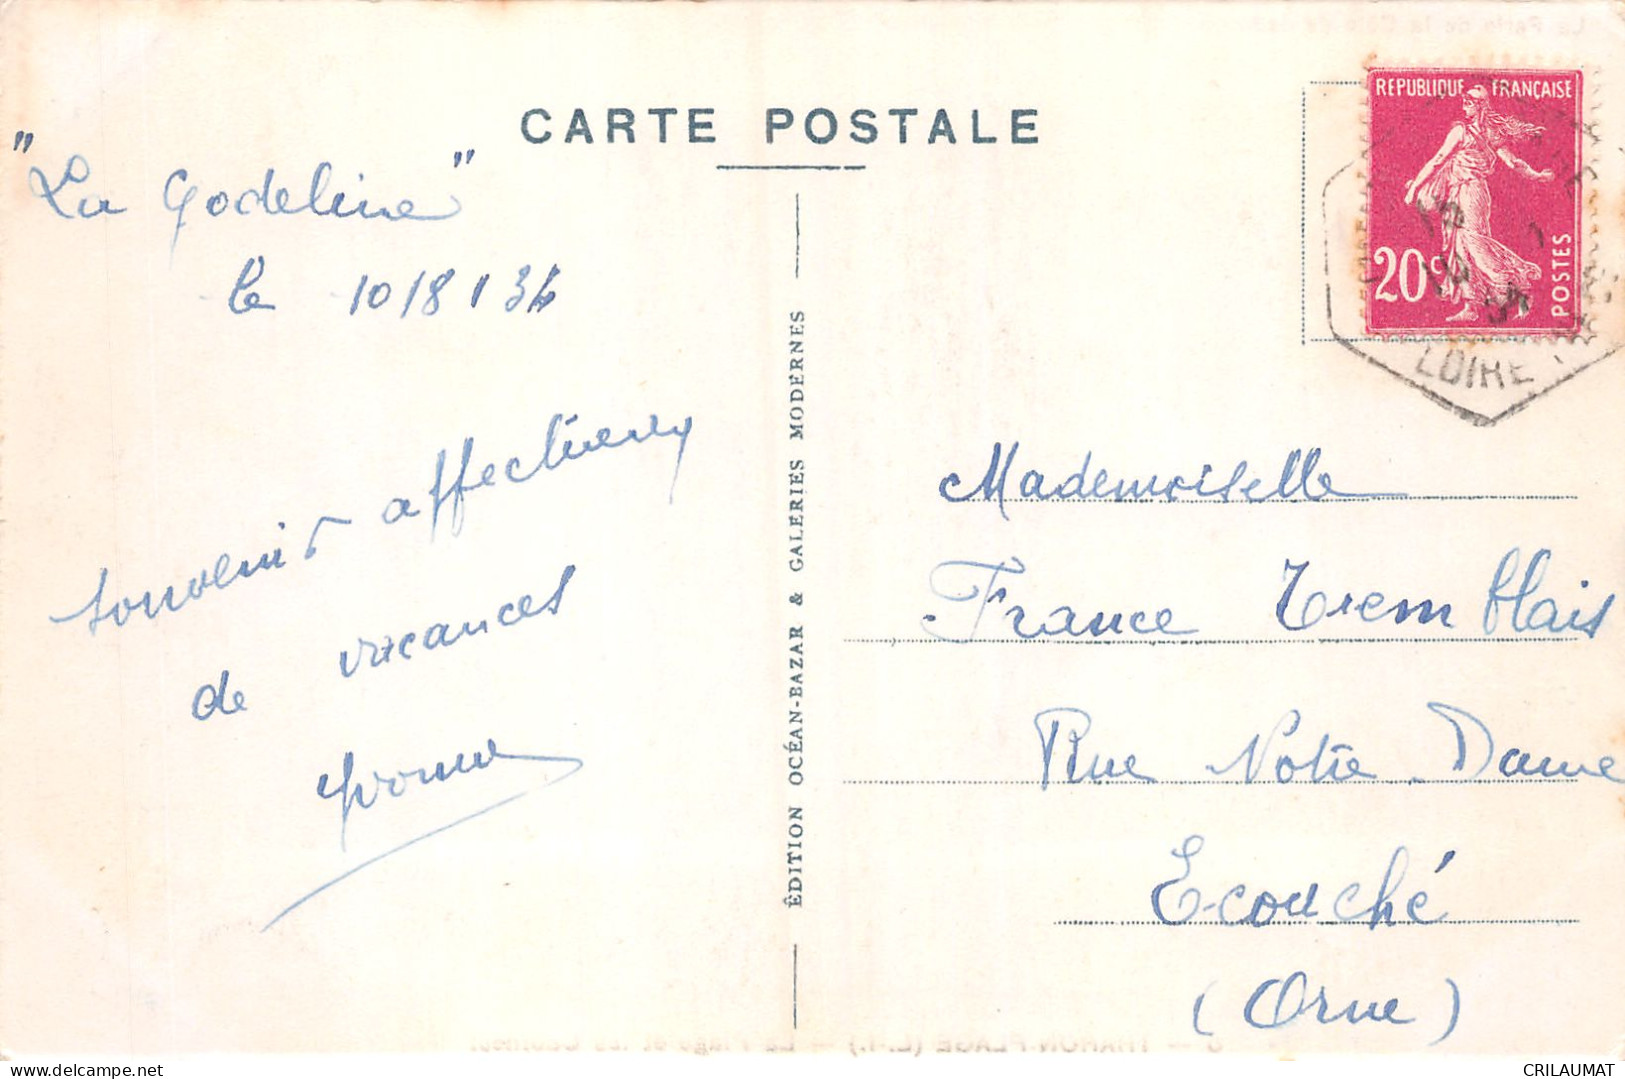 CARTE POSTALE
"La Godeline"
le 10/8/34
souvenir affectueux
de vacances
Yvonne
ÉDITION OCÉAN-BAZAR & GALERIES MODERNES
RÉPUBLIQUE FRANÇAISE
20c
POSTES
LOIRE
Mademoiselle
France Tremblais
Rue Notre Dame
Ecouché
(Orne)
CRILAUMAT